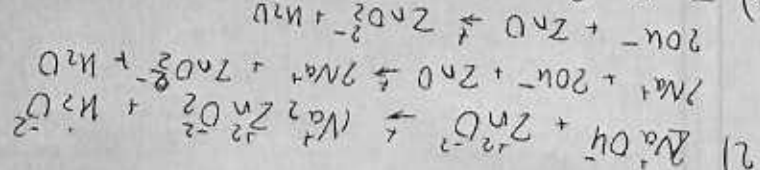 2) 2Na⁺OH⁻ + Zn⁺²O⁻² → Na⁺₂Zn⁺²O₂⁻² + H₂⁺O⁻²
2Na⁺ + 2OH⁻ + ZnO → 2Na⁺ + ZnO₂²⁻ + H₂O
2OH⁻ + ZnO → ZnO₂²⁻ + H₂O